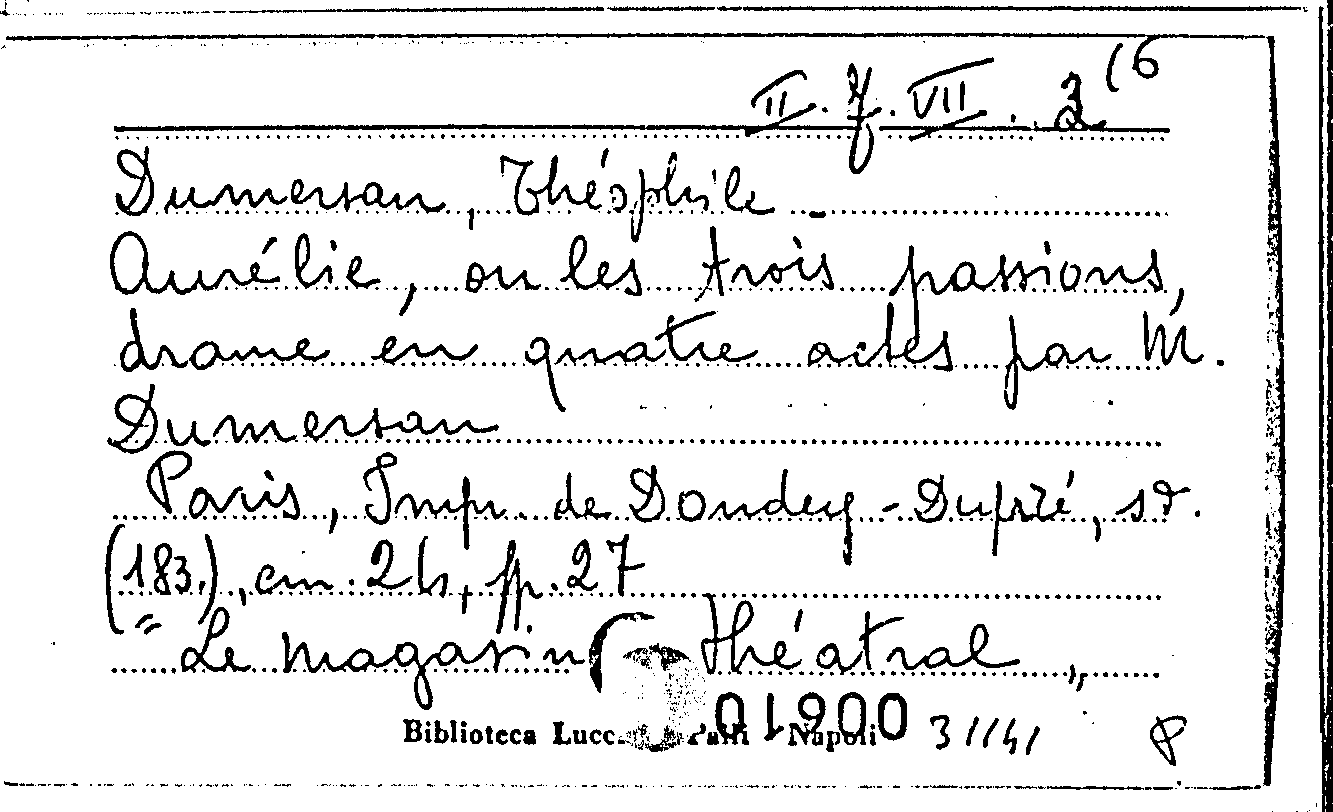 II. f. VII. 3 (6
Dumersan, Théophile
Aurélie, ou les trois passions,
drame en quatre actes par M.
Dumersan
Paris, Imp. de Dondey-Dupré, s.d.
(183.), cm. 24, pp. 27
= Le magasin théatral,,
Biblioteca Lucc Palli Napoli
01900